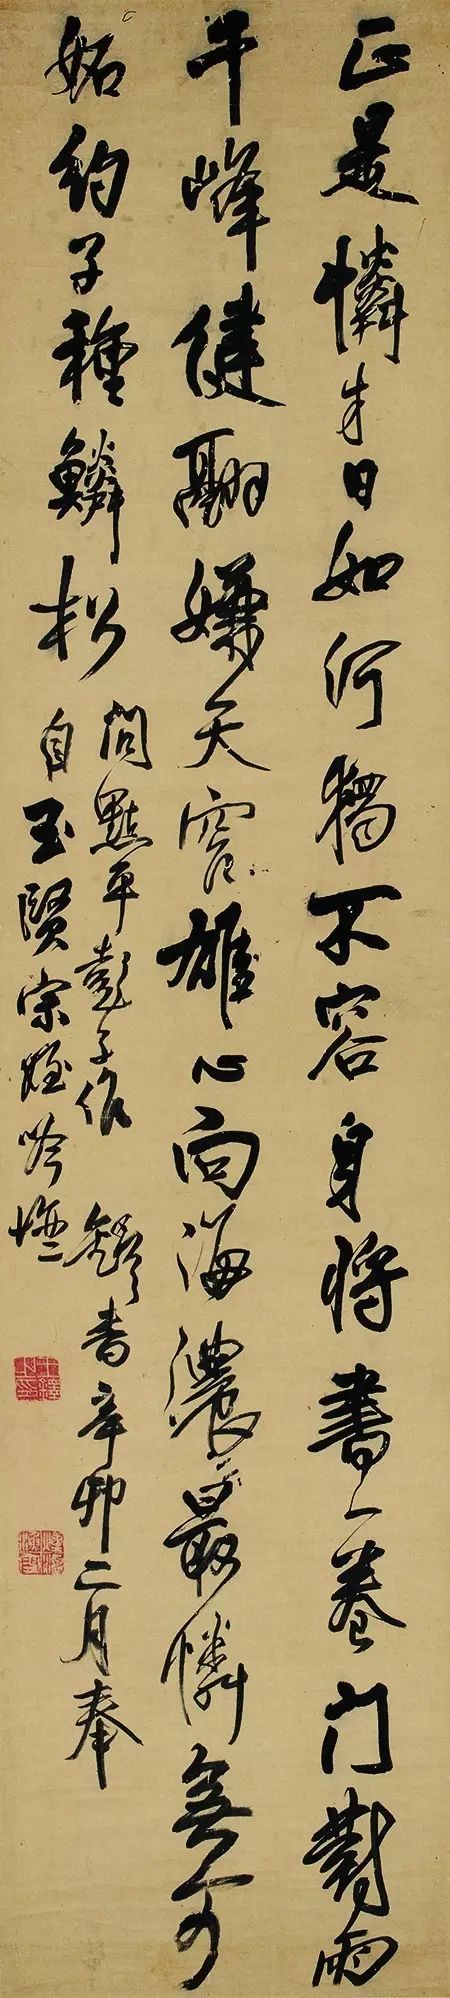 正是憐才日如何獨不容身將書一卷門對雨
千峰健翮嫌天窄雄心向海濃最憐無可
妬約子種鱗松
問點平彭子作 鐸書辛卯二月奉
自玉賢宗姪吟壇